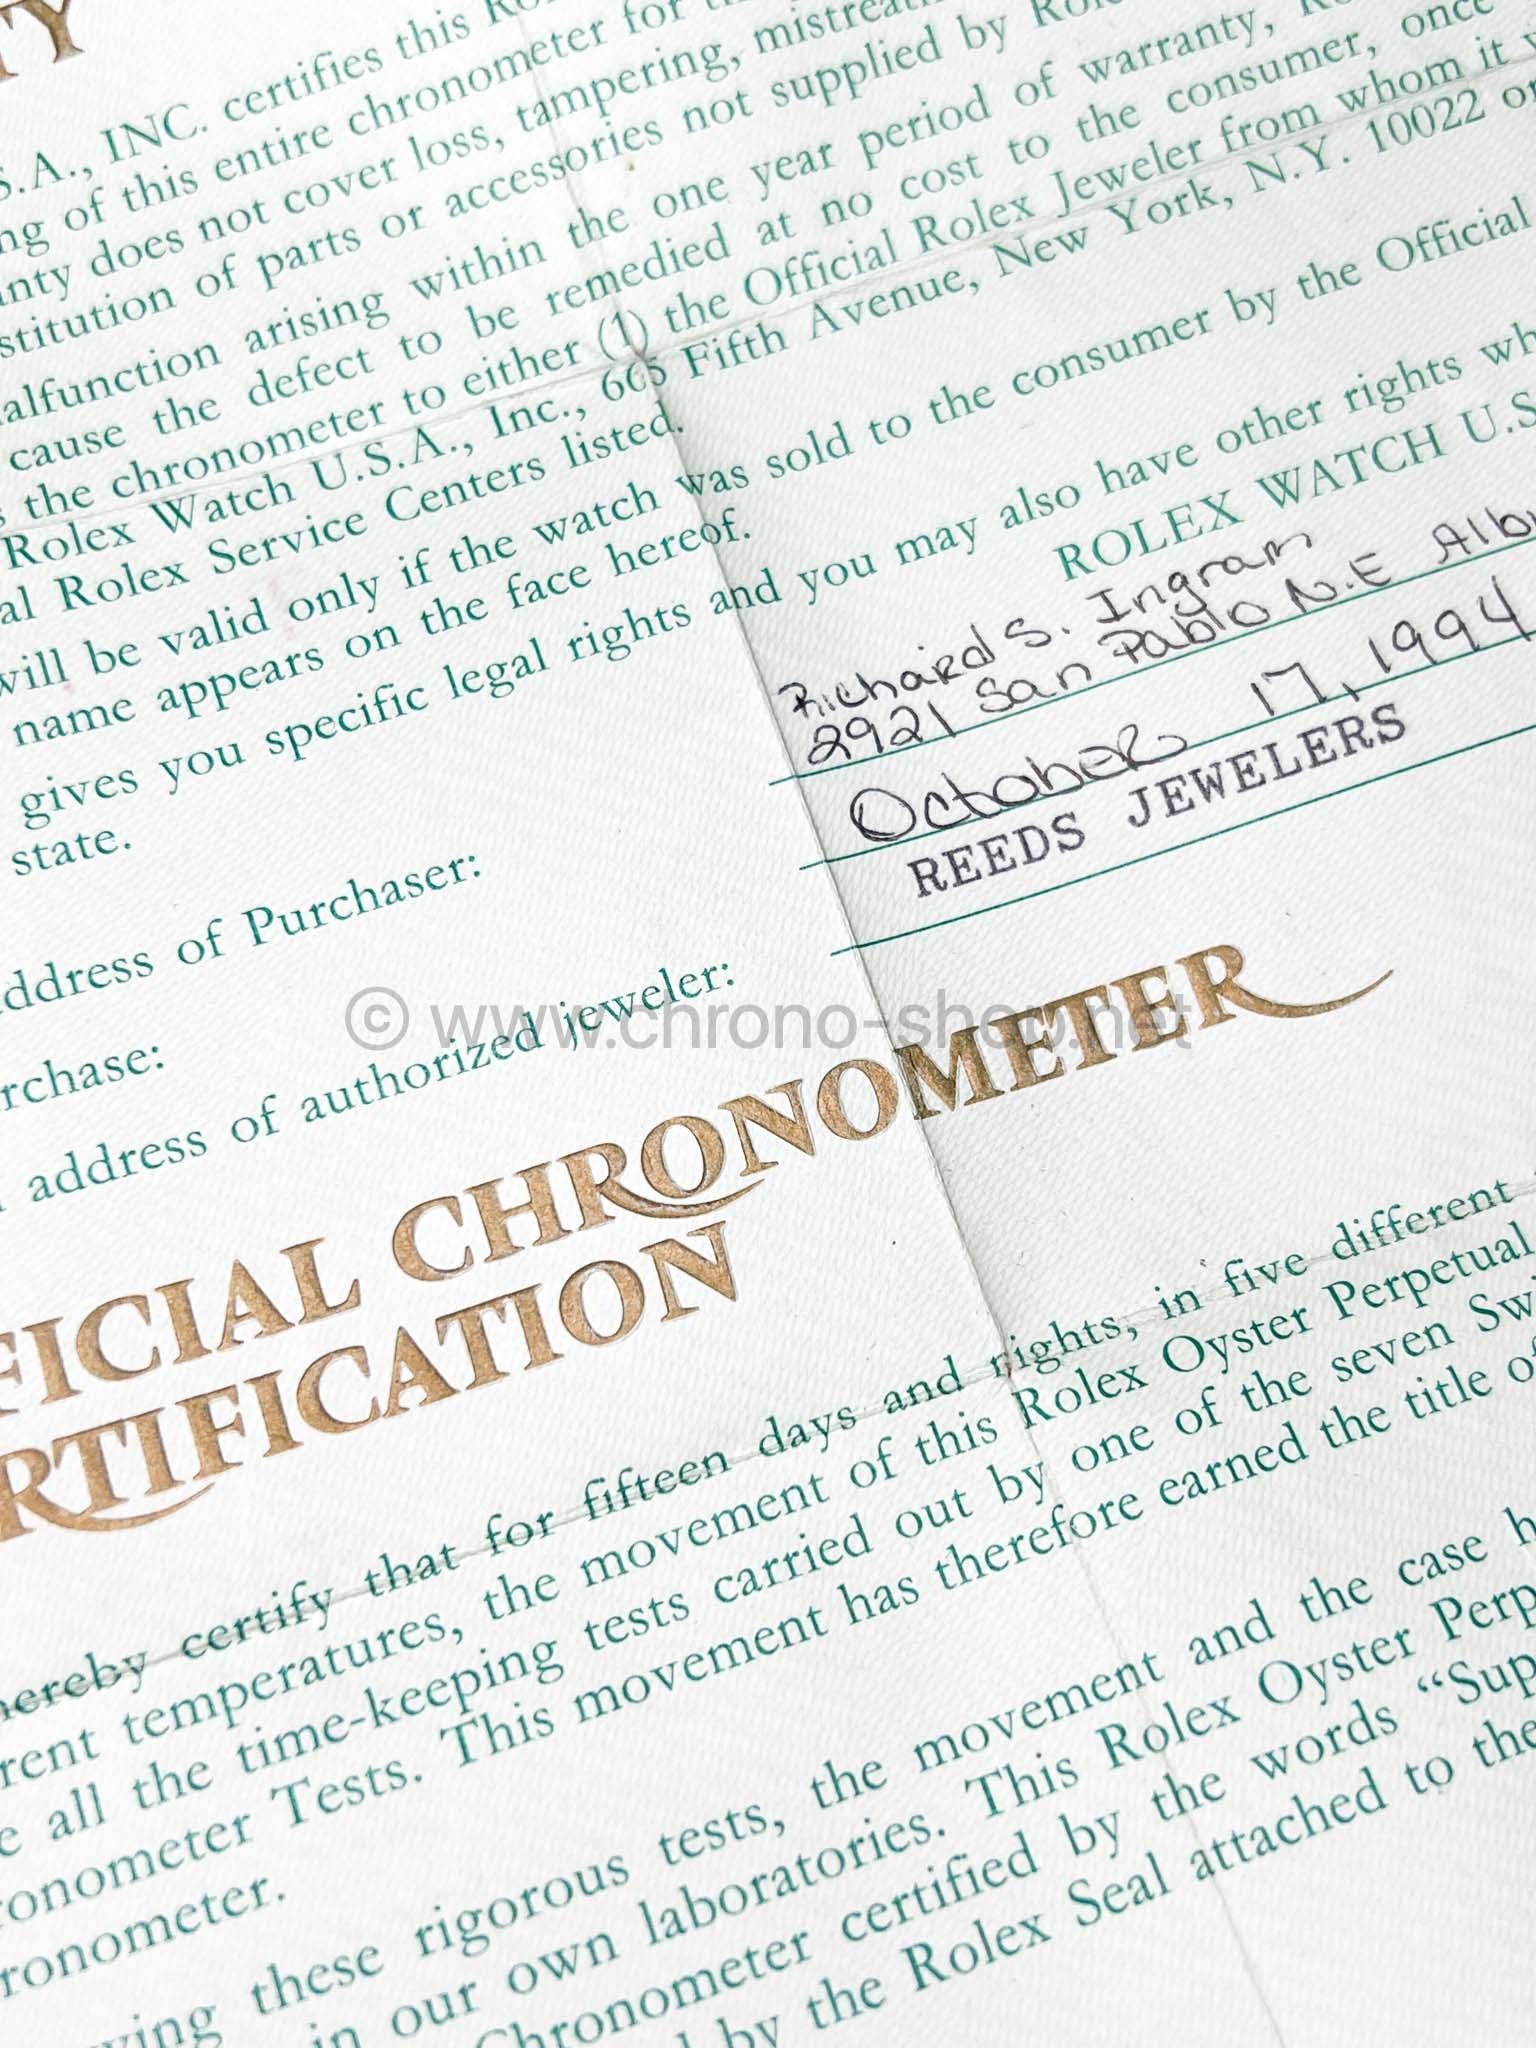 TY
S.A., INC. certifies this
ng of this entire chronometer for
nty does not cover loss, tampering,
stitution of parts or accessories not supplied by
alfunction arising within the one year period of warranty,
cause the defect to be remedied at no cost to the consumer, once
s the chronometer to either (1) the Official Rolex Jeweler from whom it
Rolex Watch U.S.A., Inc., 665 Fifth Avenue, New York, N.Y. 10022 or
al Rolex Service Centers listed.
will be valid only if the watch was sold to the consumer by the Official
name appears on the face hereof.
gives you specific legal rights and you may also have other rights
state.
ROLEX WATCH U.S.
Richard S. Ingram
ddress of Purchaser: 2921 San Pablo N.E Albu
rchase: October 17, 1994
address of authorized jeweler: REEDS JEWELERS
© www.chrono-shop.net
FICIAL CHRONOMETER
RTIFICATION
hereby certify that for fifteen days and nights, in five different
rent temperatures, the movement of this Rolex Oyster Perpetual
e all the time-keeping tests carried out by one of the seven Swi
ronometer Tests. This movement has therefore earned the title of
ronometer.
wing these rigorous tests, the movement and the case h
in our own laboratories. This Rolex Oyster Perp
Chronometer certified by the words “Sup
d by the Rolex Seal attached to the